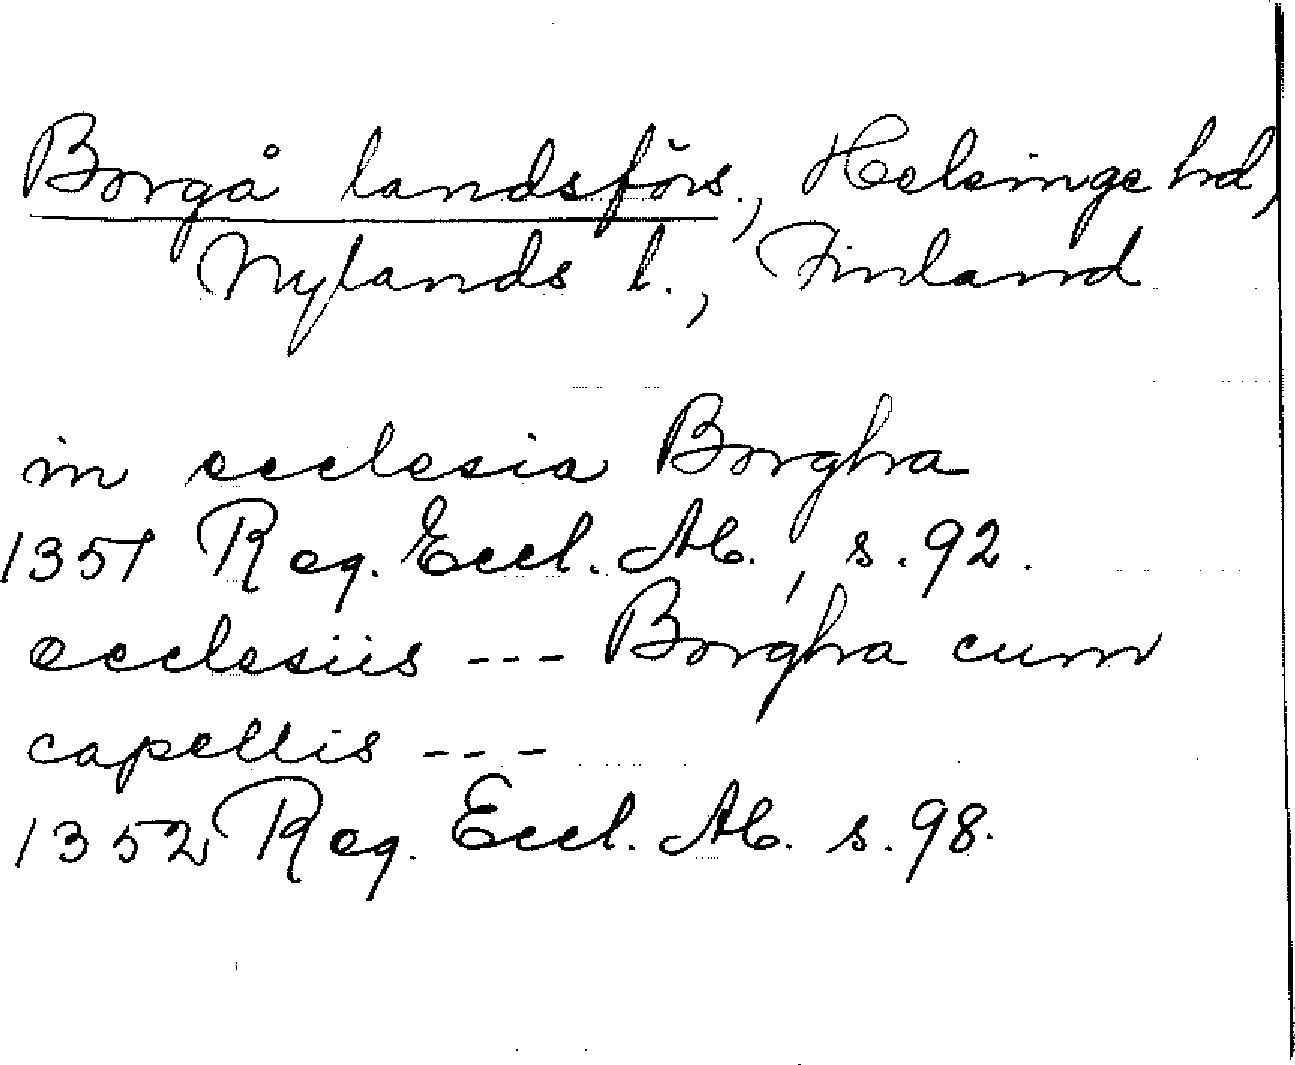 Borgå landsförs., Helsinge hd,
Nylands l., Finland
in ecclesia Borgha
1351 Reg. Eccl. Ab., s. 92.
ecclesiis --- Borgha cum
capellis ---
1352 Reg. Eccl. Ab. s. 98.